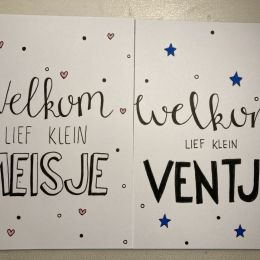 Welkom
LIEF KLEIN
MEISJE
welkom
LIEF KLEIN
VENTJ